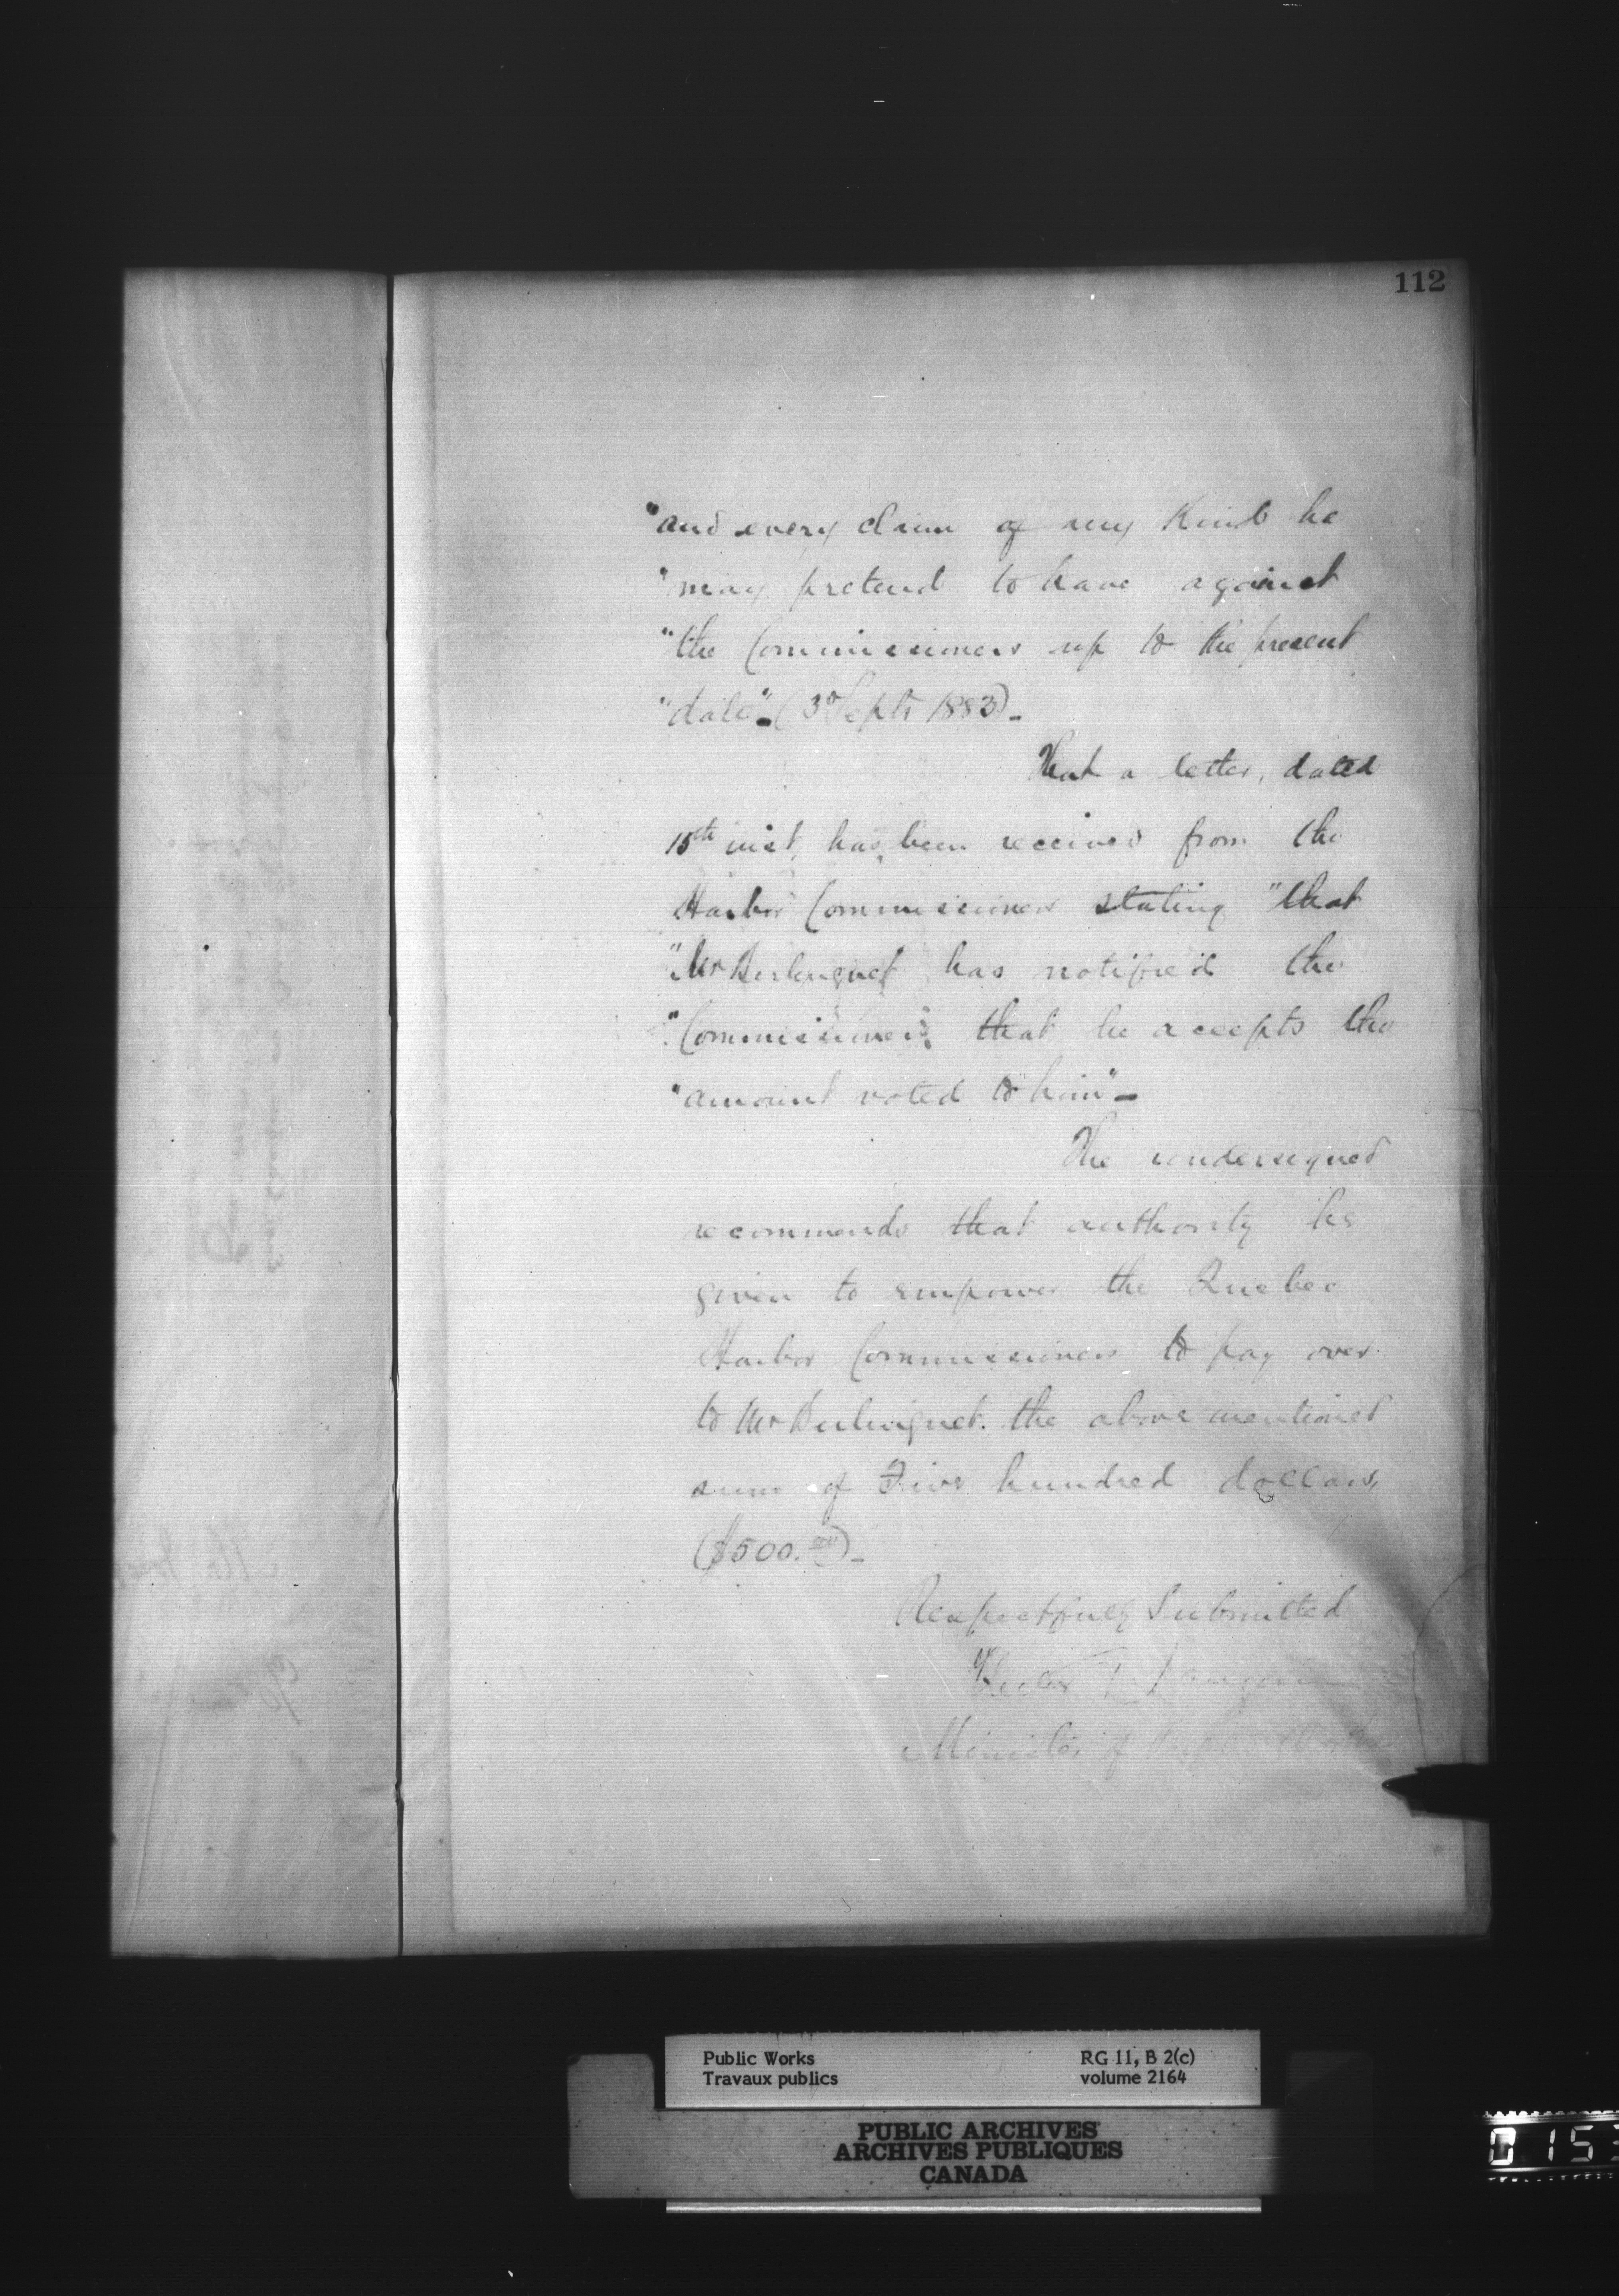 112
"and every claim of any Kind he
"may pretend to have against
"the Commissioners up to the present
"date". (3d Septr 1883).
That a letter, dated
15th inst, has been received from the
Harbor Commissioners stating "that
"Mr Berlinguet has notified the
"Commissioners, that he accepts the
"amount voted to him".
The undersigned
recommends that authority be
given to empower the Quebec
Harbor Commissioners to pay over
to Mr Berlinguet. the above mentioned
sum of Five hundred dollars,
($500.00).
Respectfully Submitted
Hector L. Langevin
Minister of Public Works
Public Works
Travaux publics
RG 11, B 2(c)
volume 2164
PUBLIC ARCHIVES
ARCHIVES PUBLIQUES
CANADA